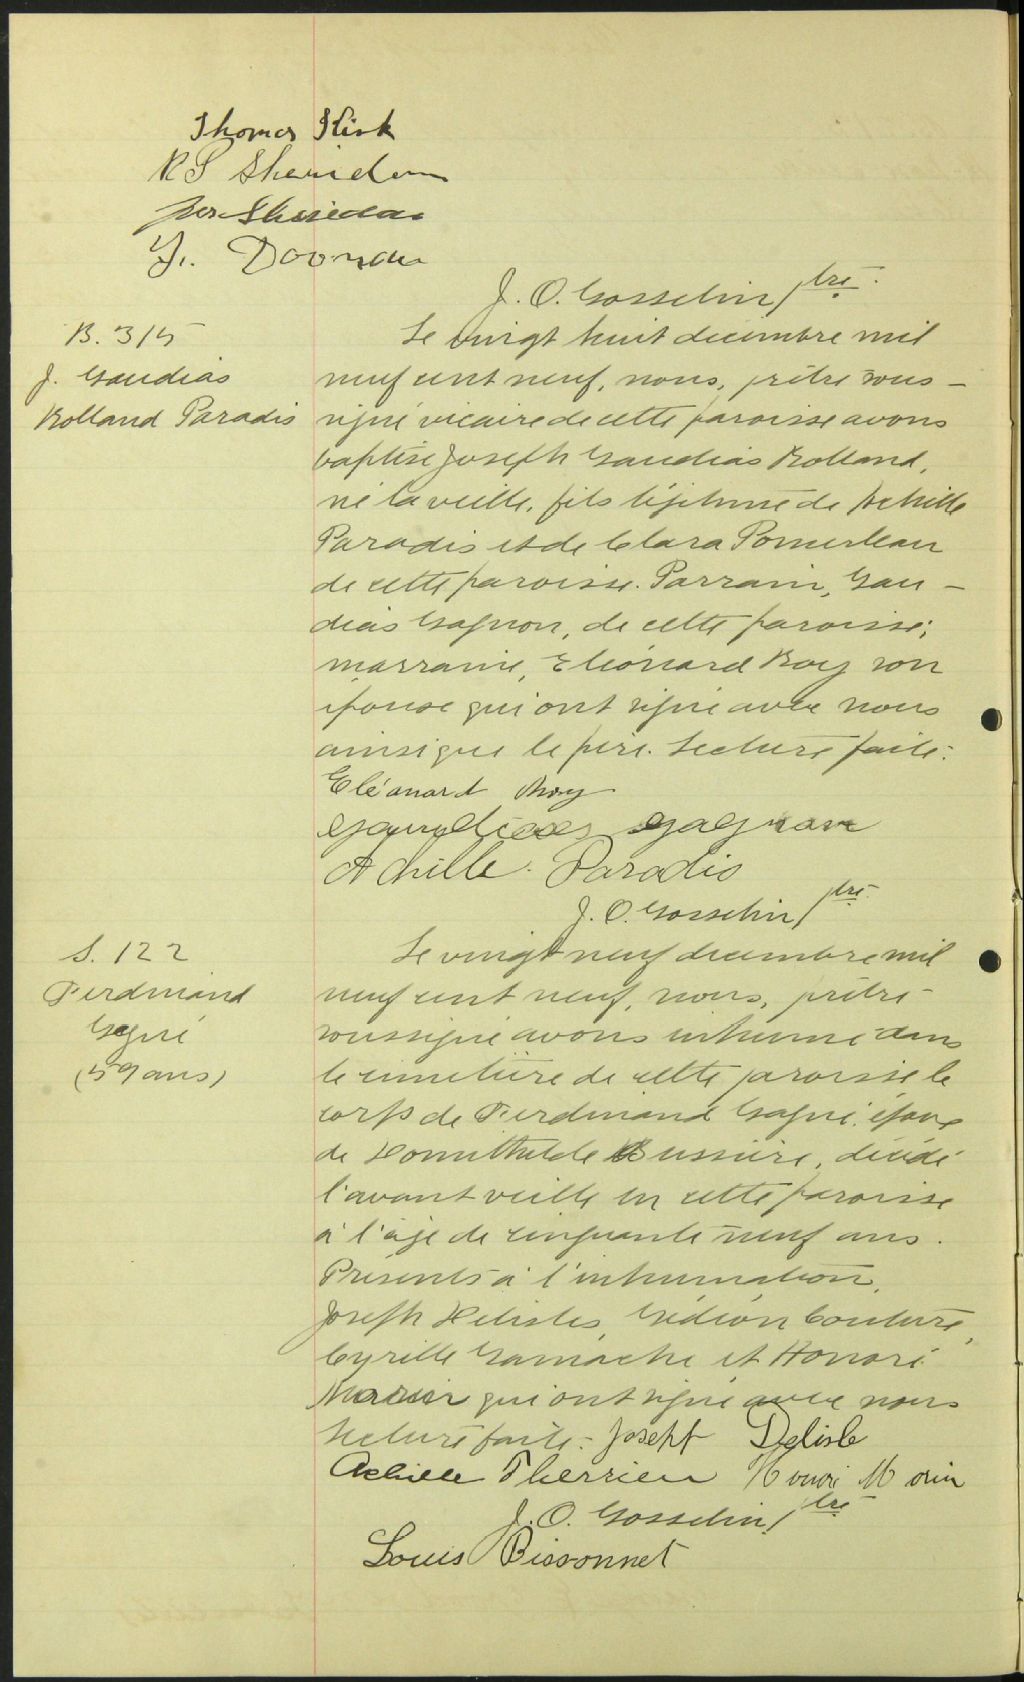 Thomas Kirk
R S Sheridan
per Sheridan
J. O. Gosselin, ptre.
B. 315
J. Gaudias
Rolland Paradis
Le vingt huit decembre mil
neuf cent neuf, nous, prêtre sous-
signé vicaire de cette paroisse avons
baptisé Joseph Gaudias Rolland,
né la veille, fils légitime de Achille
Paradis et de Clara Pomerleau
de cette paroisse. Parrain, Gau-
dias Gagnon, de cette paroisse;
marraine, Eléonard Roy son
épouse qui ont signé avec nous
ainsi que le père. Lecture faite.
Eléonard Roy
Gaudias Gagnon
Achille Paradis
J. O. Gosselin, ptre.
S. 122
Ferdinand
Gagné
(59 ans)
Le vingt neuf decembre mil
neuf cent neuf, nous, prêtre
soussigné avons inhumé dans
le cimetière de cette paroisse le
corps de Ferdinand Gagné, époux
de Domithilde Bussière, décédé
l'avant veille en cette paroisse
à l'âge de cinquante neuf ans.
Présents à l'inhumation,
Joseph Delisles, Gédéon Couture,
Cyrille Gamache et Honoré
Morin qui ont signé avec nous
Lecture faite. Joseph Delisle
Achille Therrien Honoré Morin
J. O. Gosselin, ptre
Louis Bissonnet